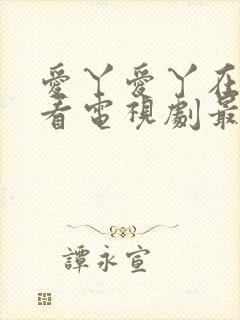 愛丫愛丫在
看電視劇最
譚永宣